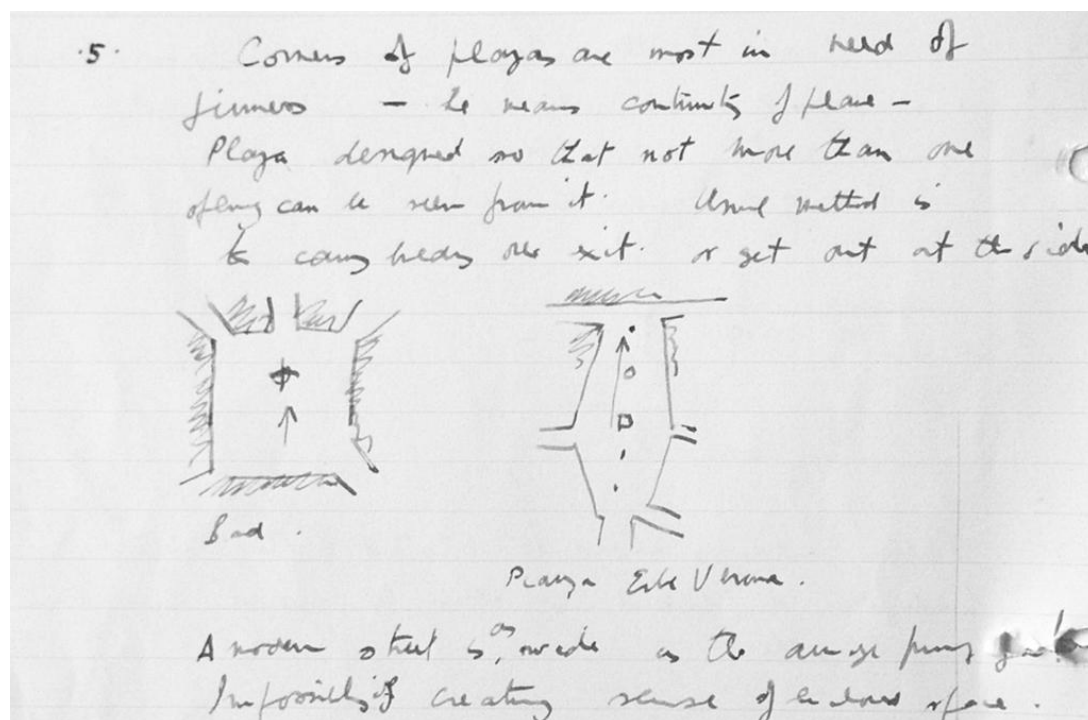 .5. Corners of plazas are most in need of
firmness – he means continuity of plane –
Plaza designed so that not more than one
opening can be seen from it. Usual method is
to carry heavy over exit. or get out at the side
Bad.
Piazza Erbe Verona.
A modern street is as wide as the average
Impossibility of creating sense of enclosed space.